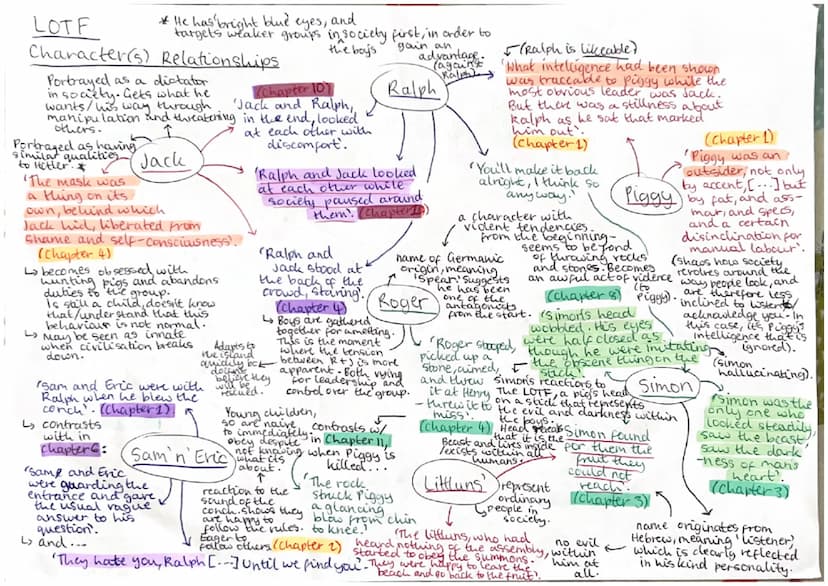 LOTF
Character(s) Relationships
* He has bright blue eyes, and
targets weaker groups in society first, in order to
↳ the boys
gain an
advantage.
(against
Ralph).
Portrayed as a dictator
in society. Gets what he
wants/his way through
manipulation and threatening
others.
Portrayed as having
similar qualities
to Hitler. *
Jack
'The mask was
a thing on its
own, behind which
Jack hid, liberated from
shame and self-consciousness'.
(Chapter 4)
↳ becomes obsessed with
hunting pigs and abandons
duties to the group.
Is still a child, doesn't know
that/understand that this
behaviour is not normal.
↳ May be seen as innate
when civilisation breaks
down.
Ralph
(Chapter 10)
'Jack and Ralph,
in the end, looked
at each other with
discomfort'.
'Ralph and Jack looked
at each other while
society paused around
them'.
'Ralph and
Jack stood at
the back of the
crowd, staring'.
(Chapter 4)
↳ Boys are gathered
together for a meeting.
This is the moment
where the tension
between R + J is more
apparent. Both vying
for leadership and
control over the group.
↙ (Ralph is likeable)
'What intelligence had been shown
was traceable to Piggy while the
most obvious leader was Jack.
But there was a stillness about
Ralph as he sat that marked
him out'.
(Chapter 1)
'You'll make it back
alright, I think so
anyway.'
Piggy
(Chapter 1)
'Piggy was an
outsider, not only
by accent, [...] but
by fat, and ass-
mar, and specs,
and a certain
disinclination for
manual labour'.
(shows how society
revolves around the
way people look, and
are therefore less
inclined to listen to/
acknowledge you. In
this case, it's Piggy's
intelligence that is
ignored).
Roger
name of Germanic
origin, meaning
'spear'. Suggests
he has been
one of the
antagonists
from the start.
a character with
violent tendencies
from the beginning-
seems to be fond
of throwing rocks
and stones. Becomes
an awful act of violence
(to
Piggy)
'Roger stooped,
picked up a
stone, aimed,
and threw
it at Henry
- threw it to
miss'.
(Chapter 4)
contrasts w/
in Chapter 11,
when Piggy is
killed...
'The rock
struck Piggy
a glancing
blow from chin
to knee'.
Simon
(Chapter 8)
'Simon's head
wobbled. His eyes
were half closed as
though he were imitating
the obscene thing on the
stick'.
(Simon
hallucinating).
Simon's reactions to
The LOTF, a pig's head
on a stick that represents
the evil and darkness within
the boys.
that it is the
Beast and lives inside
/exists within all
humans.
'Simon found
for them the
fruit they
could not
reach'.
(Chapter 3)
'Simon was the
only one who
looked steadily
saw the beast
saw the dark-
ness of man's
heart'.
(Chapter 3)
name originates from
Hebrew, meaning 'listener'
which is clearly reflected
in his kind personality.
no evil
within him
at all.
Sam 'n' Eric
'Sam and Eric were with
Ralph when he blew the
conch'. (Chapter 1)
↳ contrasts
with in
Chapter 6:
'Sam and Eric
were guarding the
entrance and gave
the usual vague
answer to his
question'.
↳ and...
'They hate you, Ralph [...] Until we find you'.
Adapts to
the island
quickly bc
doesn't
believe they
will be
rescued.
Young children,
so are naive
to immediately
obey despite
not knowing
what its
about.
reaction to the
sound of the
conch. shows they
are happy to
follow the rules.
Eager to
follow others.
(Chapter 2)
Littluns'
represent
ordinary
people in
society.
'The littluns, who had
heard nothing of the assembly,
started to obey the summons.
They were happy to leave the
beach and go back to the fruit'.